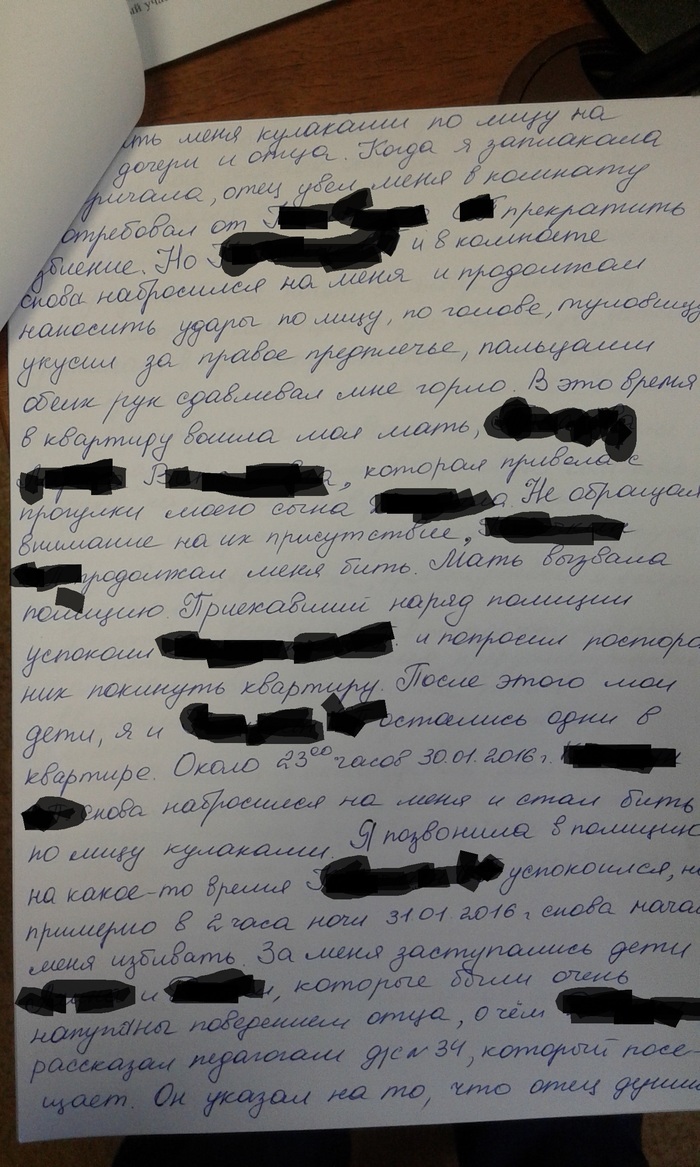 ть меня кулаками по лицу на
дочери и отца. Когда я заплакала
ричала, отец увел меня в комнату
отребовал от прекратить
збиение. Но и в комнате
снова набросился на меня и продолжал
наносить удары по лицу, по голове, туловищу
укусил за правое предплечье, пальцами
обеих рук сдавливал мне горло. В это время
в квартиру вошла моя мать,
В а, которая привела с
прогулки моего сына а. Не обращая
внимание на их присутствие,
продолжал меня бить. Мать вызвала
полицию. Приехавший наряд полиции
успокоил и попросил посторо
них покинуть квартиру. После этого мои
дети, я и остались одни в
квартире. Около 23⁰⁰ часов 30.01.2016г.
снова набросился на меня и стал бить
по лицу кулаками. Я позвонила в полицию
на какое-то время успокоился, н
примерно в 2 часа ночи 31.01.2016г снова начал
меня избивать. За меня заступались дети
и и, которые были очень
напуганы поведением отца, о чём
рассказал педагогам д/с № 34, который посе-
щает. Он указал на то, что отец души